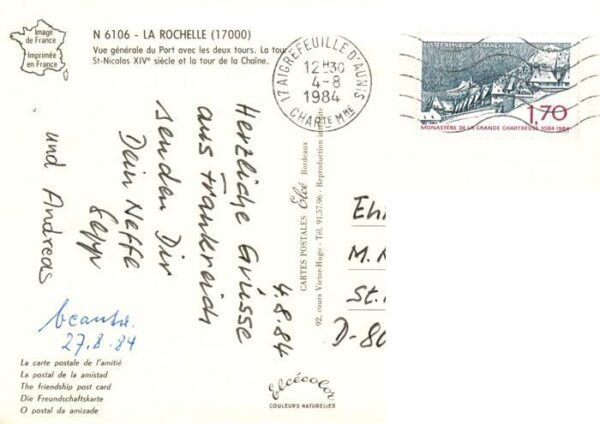 Image
de France
Imprimée
en France
N 6106 - LA ROCHELLE (17000)
Vue générale du Port avec les deux tours. La tour
St-Nicolas XIVe siècle et la tour de la Chaîne.
17 AIGREFEUILLE D'AUNIS
12H30
4-8
1984
CHARTE MME
POSTES REPUBLIQUE FRANÇAISE
1,70
MONASTÈRE DE LA GRANDE CHARTREUSE 1084-1984
4.8.84
Herzliche Grüsse
aus Frankreich
senden Dir
Dein Neffe
Sepp
und Andreas
27.8.84
CARTES POSTALES Elcé Bordeaux
92, cours Victor-Hugo - Tél. 91.57.96 - Reproduction
M.
St.
D-80
La carte postale de l'amitié
La postal de la amistad
The friendship post card
Die Freundschaftskarte
O postal da amizade
Elcécolor
COULEURS NATURELLES